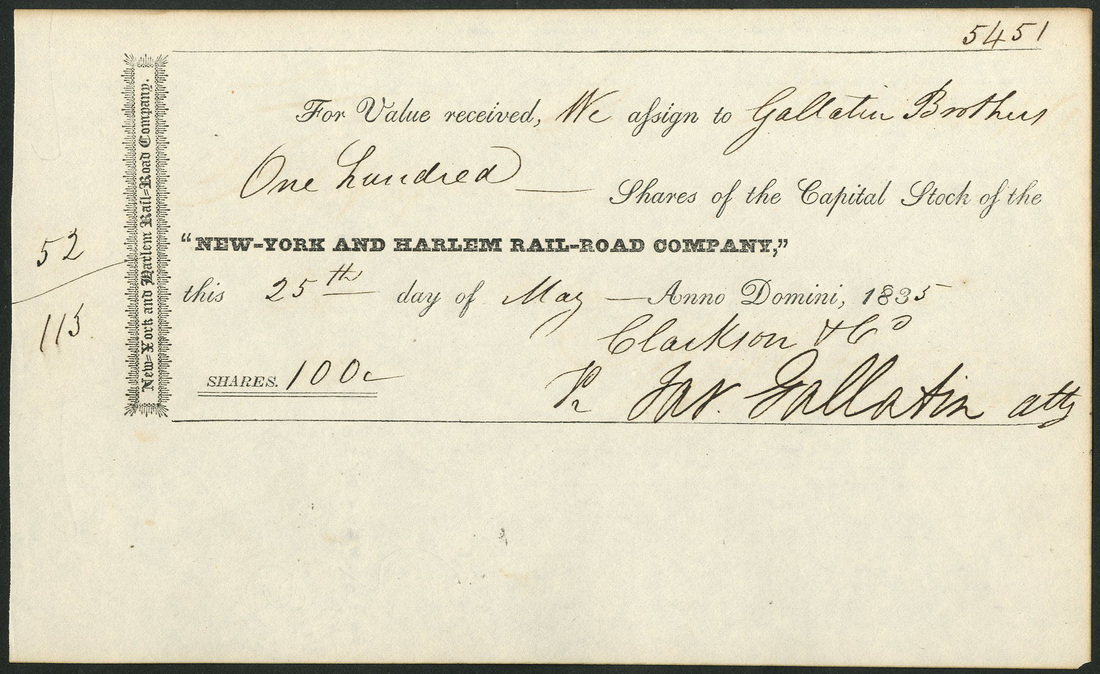 5451
New-York and Harlem Rail-Road Company.
For Value received, We aſsign to Gallatin Brothers
One hundred — Shares of the Capital Stock of the
“NEW-YORK AND HARLEM RAIL-ROAD COMPANY,”
this 25th day of May — Anno Domini, 1835
Clarkson & Co
SHARES. 100
Pr Jas. Gallatin atty
52
115